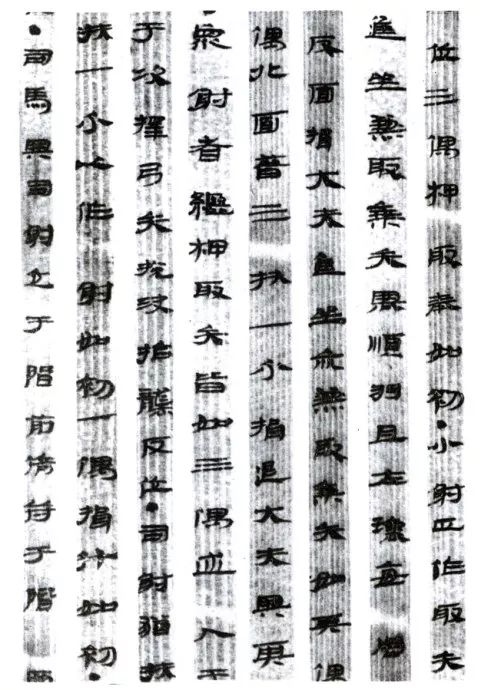 位三偶柙取恭如初●小射正作取矢
進坐兼取乘矢興順羽且左環毋周
反面揖大夫進坐亦兼取乘矢如其偶
偶北面晉三扶一个揖退大夫與其
眾射者繼柙取矢皆如三偶遂入于
于次擇弓矢説決拾襲反位●司射猶扶
扶一个以作射如初一偶揖升如初●
●司馬與司射交于階前倚扑于階西